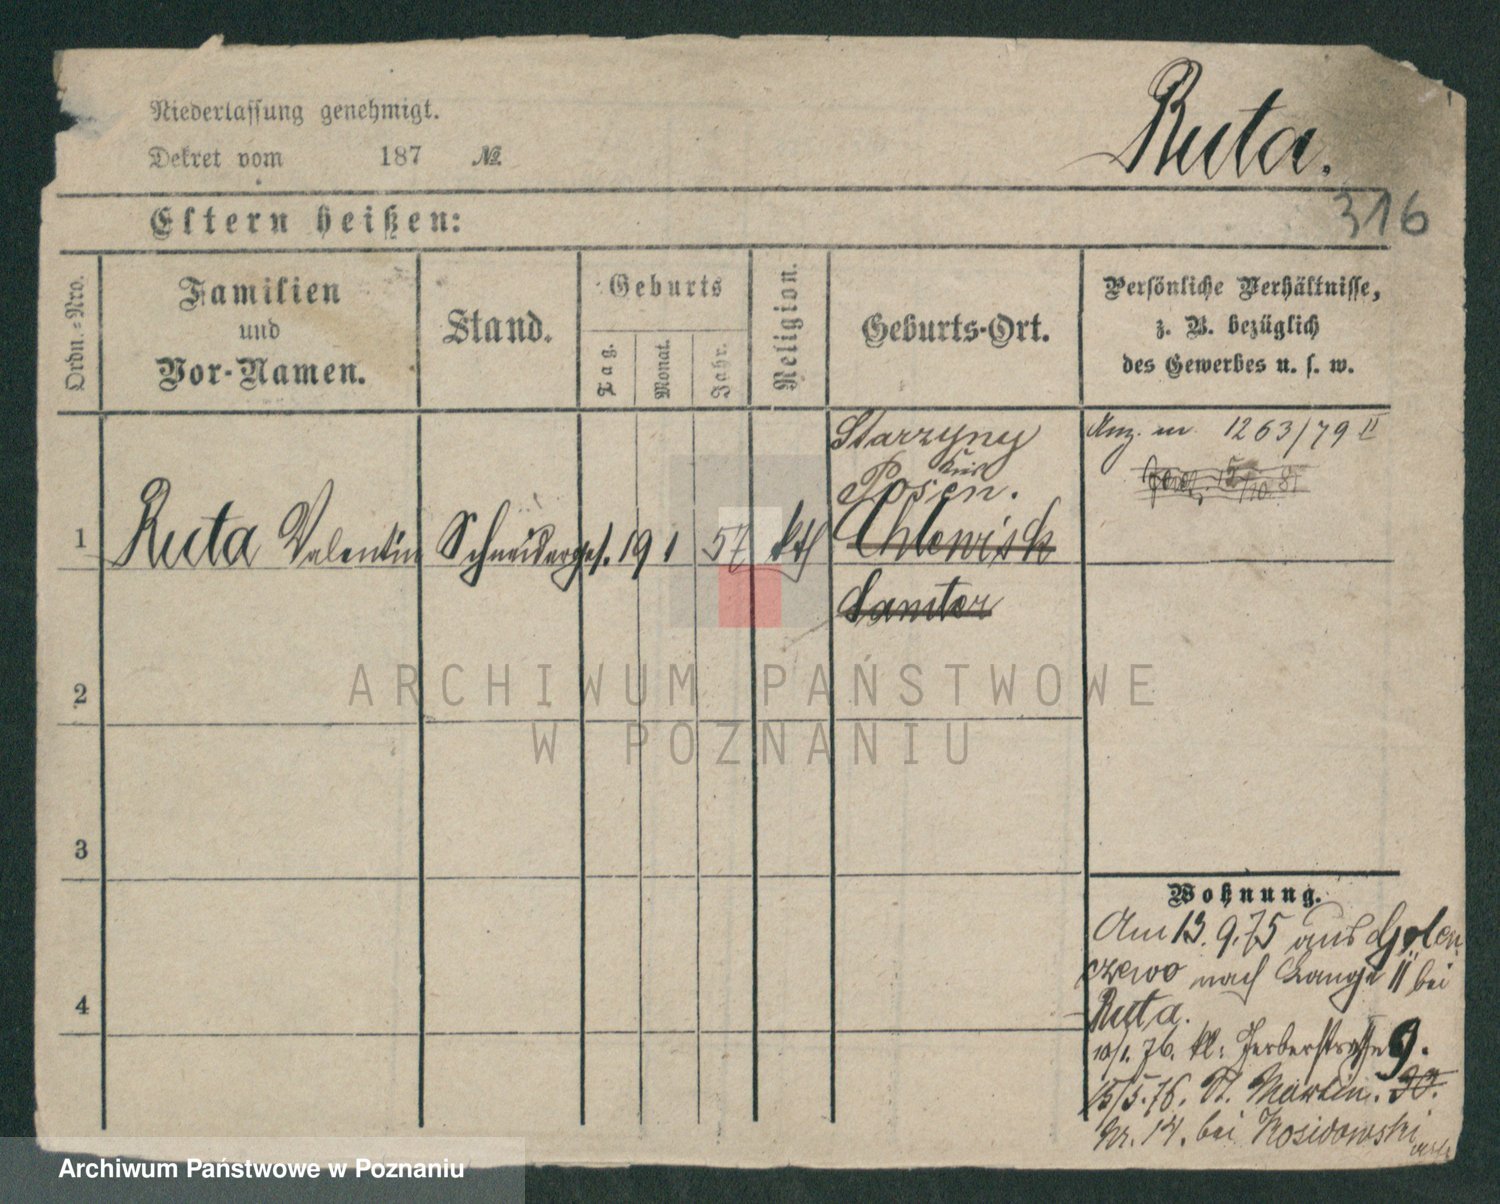 Niederlassung genehmigt.
Dekret vom 187 №
Ruta.
316
Eltern heißen:
Ordn.-Nro.
Familien
und
Vor-Namen.
Stand.
Geburts
Tag.
Monat.
Jahr.
Religion.
Geburts-Ort.
Persönliche Verhältnisse,
z. B. bezüglich
des Gewerbes u. s. w.
1
Ruta Valentin
Schneiderges.
19 1 57
kth
Starzyny
Posen.
Chlewisk
Samter
1263/79 II
2
3
4
Wohnung.
Am 13. 9. 75 aus Golen
czewo nach Lange 11 bei
Ruta.
10/1. 76. kl. Gerberstraße 9.
15/5. 76. St. Martin. 30.
Nr. 14. bei Kosidowski
ARCHIWUM PAŃSTWOWE
W POZNANIU
Archiwum Państwowe w Poznaniu